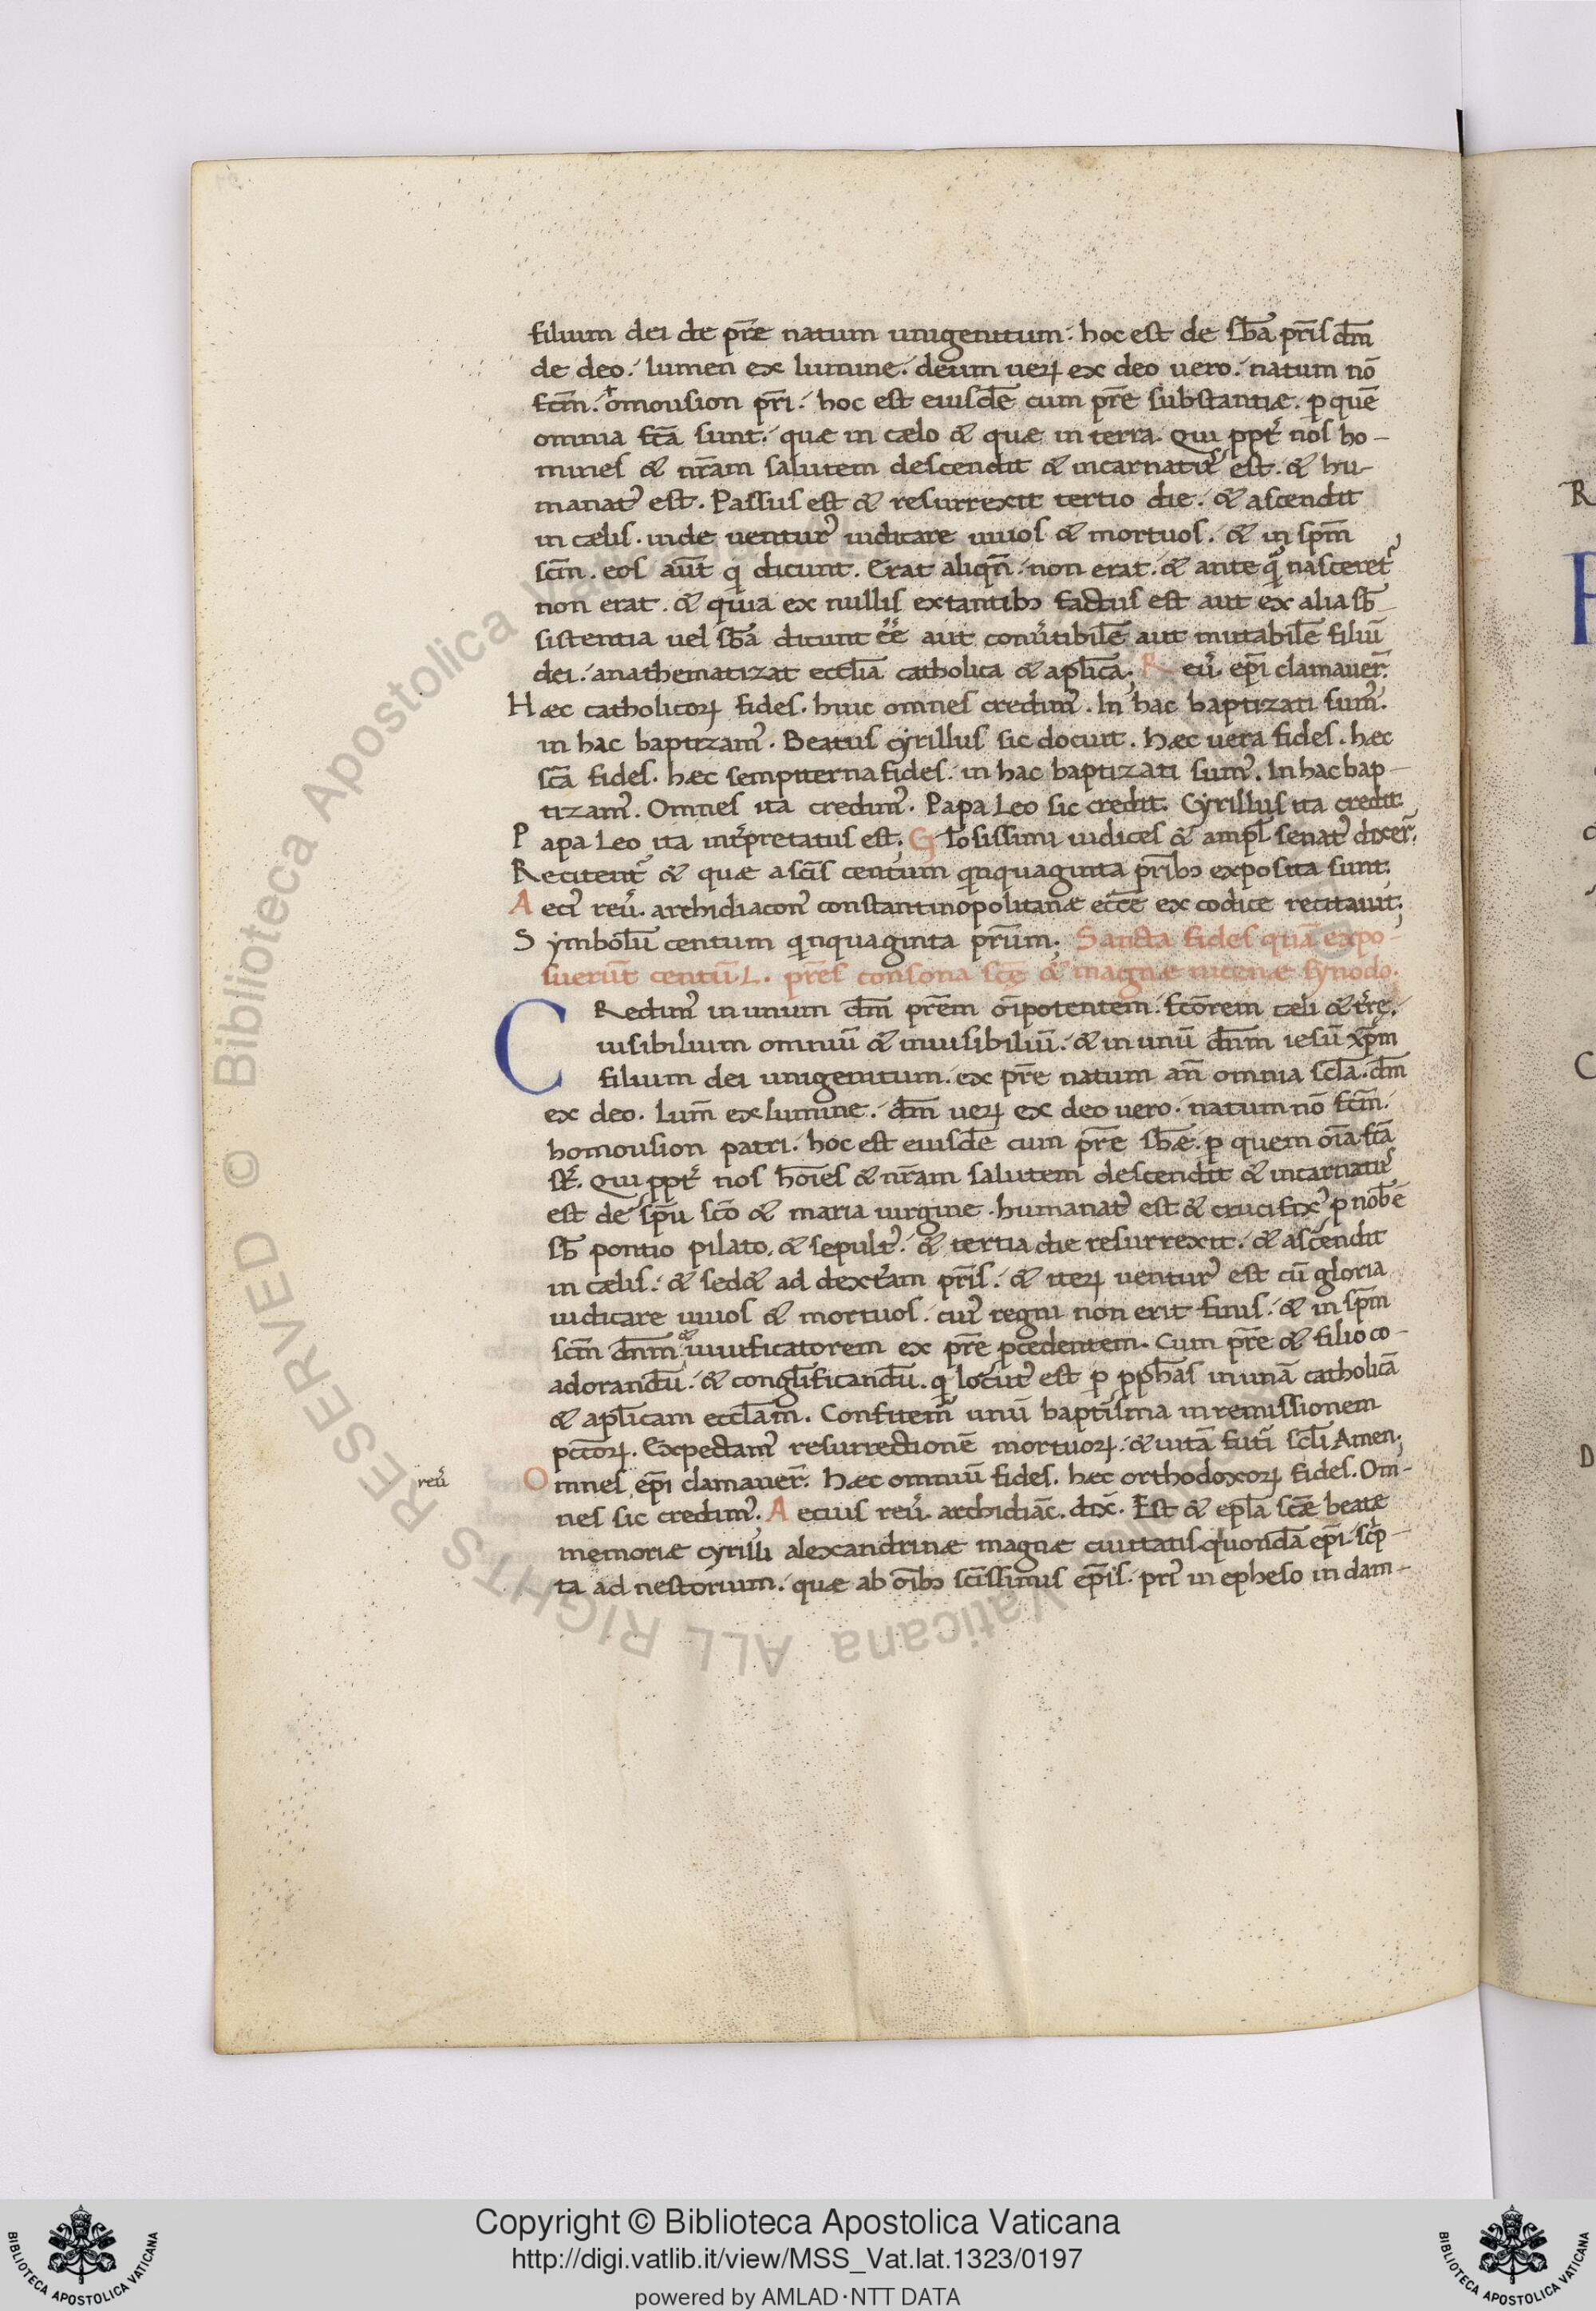 filium dei de pr̄e natum unigenitum. hoc est de sb̄a pr̄is dm̄
de deo. lumen ex lumine. deum ueꝝ ex deo uero. natum nō
fcm̄. omousion pr̄i. hoc est eiusdē cum pr̄e substantiæ. ꝑ quē
omnia fcā sunt. quæ in cælo & quæ in terra. Qui ꝓpt̉ nos ho-
mines & nr̄am salutem descendit & incarnatꝰ est. & hu-
manatꝰ est. Passus est & resurrexit tertio die. & ascendit
in cælis. inde uenturꝰ iudicare uiuos & mortuos. & in spm̄
scm̄. eos aūt qͥ dicunt. Erat aliqn̄ non erat. & ante qͣ nasceret᷑
non erat. & quia ex nullis extantibꝫ factus est aut ex alia sb̄-
sistentia uel sb̄a dicunt ēē aut conu̾tibilē aut mutabilē filiū
dei. anathematizat eccl̄ia catholica & apl̄ica; Reu̾. ep̄i clamauer̄.
Hæc catholicoꝝ fides. huic omnes credimꝰ. In hac baptizati sumꝰ.
in hac baptizamꝰ. Beatus cyrillus sic docuit. hæc uera fides. hæc
scā fides. hæc sempiterna fides. in hac baptizati sumꝰ. In hac bap-
tizamꝰ. Omnes ita credimꝰ. Papa Leo sic credit. Cyrillus ita credit.
Papa Leo ita int̉pretatus est; Gl̄osissimi iudices & ampl̄ senatꝰ dixer̄.
Recitent᷑ & quæ a scīs centum qͥnquaginta pr̄ibꝫ exposita sunt.
Aecꝰ reu̾. archidiaconꝰ constantinopolitanæ ecc̄e ex codice recitauit;
Symbolū centum qͥnquaginta pr̄um; Sancta fides quā expo-
suerūt centū L. pr̄es consona scę̄ & magnæ nicenæ synodo.
CRedimꝰ in unum dm̄ pr̄em oīpotentem. fcōrem cæli & t̉re.
uisibilium omniū & inuisibiliū. & in unū dn̄m iesū xp̄m
filium dei unigenitum. ex pr̄e natum an̄ omnia scl̄a. dm̄
ex deo. lum̄ ex lumine. dm̄ ueꝝ ex deo uero. natum nō fcm̄.
homousion patri. hoc est eiusdē cum pr̄e sb̄æ. ꝑ quem oīa fcā
st̄. Qui ꝓpt̉ nos hōies & nr̄am salutem descendit & incarnatꝰ
est de sp̄u scō & maria uirgine. humanatꝰ est & crucifixꝰ ꝓ nob̄ ē
sb̄ pontio pilato. & sepultꝰ. & tertia die resurrexit. & ascendit
in cælis. & sed& ad dext̉am pr̄is. & iteꝝ uenturꝰ est cū gloria
iudicare uiuos & mortuos. cuiꝰ regni non erit finis. & in spm̄
scm̄ dn̄m & uiuificatorem ex pr̄e ꝓcedentem. Cum pr̄e & filio co-
adorandū. & congl̄ificandū. qͥ locutꝰ est ꝑ ꝓph̄as in unā catholicā
& apl̄icam eccl̄am. Confitemꝰ unū baptisma in remissionem
pcc̄oꝝ. Expectamꝰ resurrectionē mortuoꝝ. & uitā futi̾ scl̄i Amen;
reu̾
Omnes ep̄i clamauer̄. Hæc omniū fides. hæc orthodoxoꝝ fides. Om-
nes sic credimꝰ. Aecius reu̾. archidiāc. dix̄. Est & epl̄a scǣ beatæ
memoriæ cyrilli alexandrinæ magnæ ciuitatis quondā ep̄i. scͥp-
ta ad nestorium. quæ ab oībꝫ scīssimis ep̄is. priꝰ in epheso in dam-
Copyright © Biblioteca Apostolica Vaticana
http://digi.vatlib.it/view/MSS_Vat.lat.1323/0197
powered by AMLAD·NTT DATA